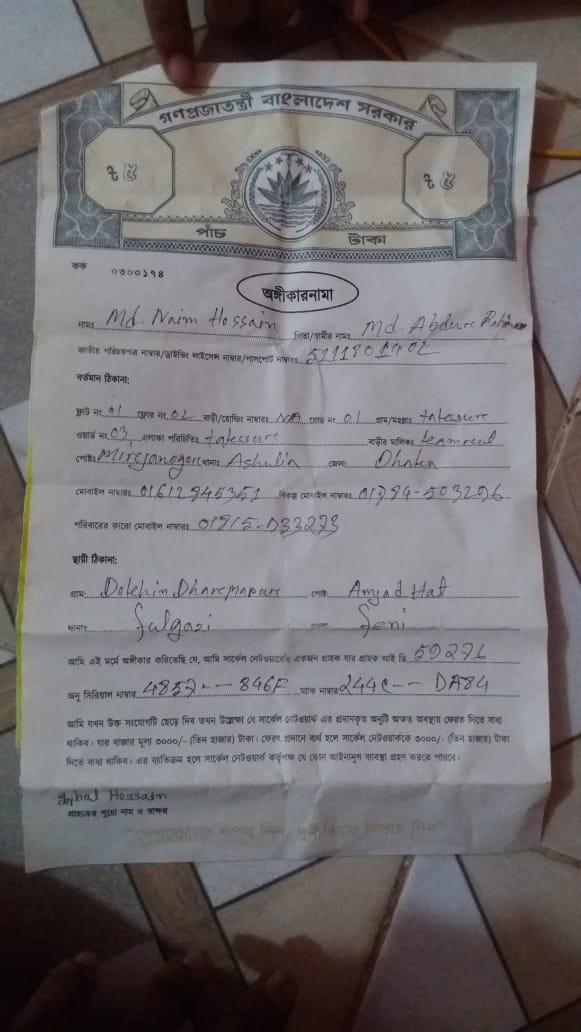 গণপ্রজাতন্ত্রী বাংলাদেশ সরকার
৳ ৫ ৳ ৫
পাঁচ টাকা
কক ০৩০০১৭৪
অঙ্গীকারনামা
নামঃ Md. Naim Hossain পিতা/স্বামীর নামঃ Md. Abdure
জাতীয় পরিচয়পত্র নাম্বার/ড্রাইভিং লাইসেন্স নাম্বার/পাসপোর্ট নাম্বারঃ
বর্তমান ঠিকানা:
ফ্লাট নং 01 ফ্লোর নং 02 বাড়ী/হোল্ডিং নাম্বারঃ N/A রোড নং 01 গ্রাম/মহল্লাঃ
ওয়ার্ড নং 03 এলাকা পরিচিতিঃ বাড়ীর মালিকঃ
পোষ্টঃ থানাঃ Ashulia জেলা: Dhaka
মোবাইল নাম্বারঃ 01612945351 বিকল্প মোবাইল নাম্বারঃ
পরিবারের কারো মোবাইল নাম্বারঃ 01915-033273
স্থায়ী ঠিকানা:
গ্রাম: পোষ্ট: Amjad Hat
থানাঃ fulgazi feni
আমি এই মর্মে অঙ্গীকার করিতেছি যে, আমি সার্কেল নেটওয়ার্কের একজন গ্রাহক যার গ্রাহক আই ডি 59276
অনু সিরিয়াল নাম্বার 4857-- 896F ম্যাক নাম্বার 244C-- DA84
আমি যখন উক্ত সংযোগটি ছেড়ে দিব তখন উল্লেখ্য যে সার্কেল নেটওয়ার্ক এর প্রদানকৃত অনুটি অক্ষত অবস্থায় ফেরত দিতে বাধ্য
থাকিব। যার বাজার মূল্য ৩০০০/- (তিন হাজার) টাকা। ফেরৎ প্রদানে ব্যর্থ হলে সার্কেল নেটওয়ার্ককে ৩০০০/- (তিন হাজার) টাকা
দিতে বাধ্য থাকিব। এর ব্যতিক্রম হলে সার্কেল নেটওয়ার্ক কর্তৃপক্ষ যে কোন আইনানুগ ব্যবস্থা গ্রহণ করতে পারবে।
Iqbal Hossain
গ্রাহকের পুরো নাম ও স্বাক্ষর